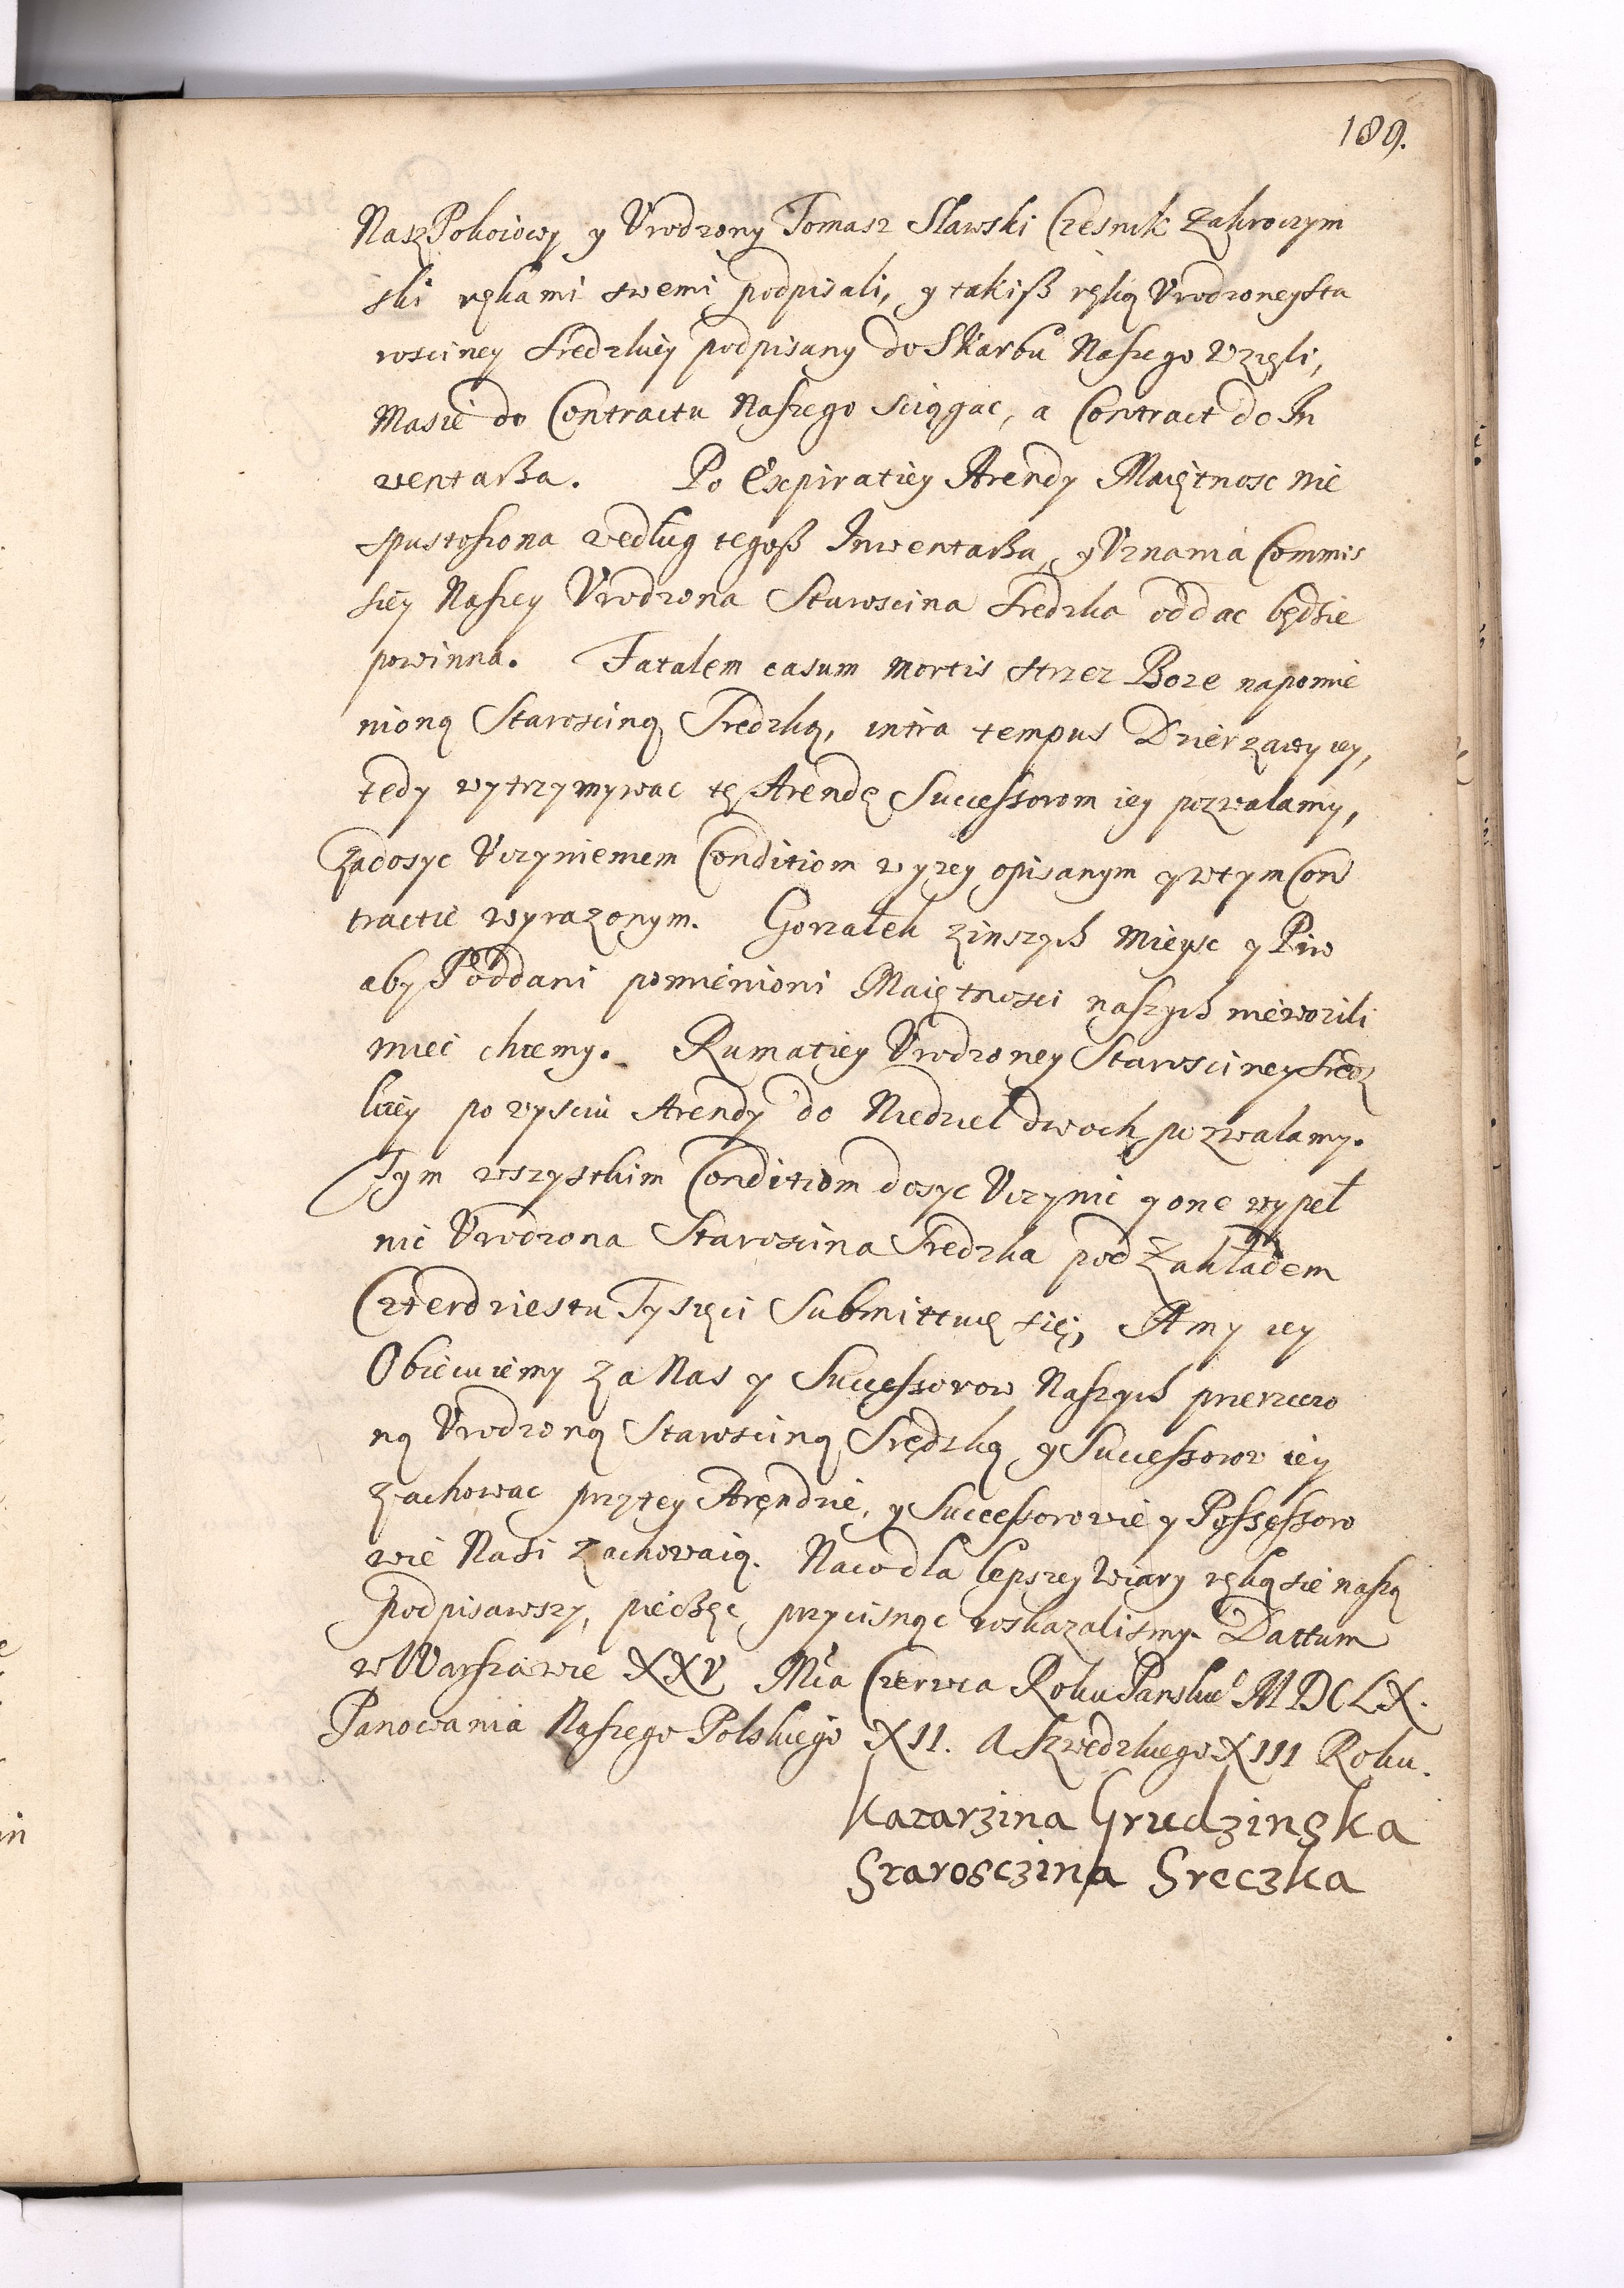 189.
Nasz Pokoiowy y Vrodzony Tomasz Sławski Czesnik Zakroczym
ski rękami swemi podpisali, y takiß ręką Vrodzoney Sta
rosciney Sredzkiey podpisany do Skarbu Naszego Wzęli,
Masie do Contractu Naszego sciągac, a Contract do In
ventarßa. Po Expiratiey Arendy Maiętnosc nie
spustoszona według tegoß Inwentarßa, y Vznania Commis
siey Naszey Vrodzona Staroscina Sredzka oddac będzie
powinna. Fatalem casum mortis strzez Boze napomie
nioną Staroscinę Sredzką, intra tempus Dzierzawy iey,
tedy wytrzymywac tę Arendę Successorom iey pozwalamy,
zadosyc Vczynieniem Conditiom wyzey opisanym y w tym Con
tractie wyrazonym. Gorzałek z inszych Mieysc y Piw
aby Poddani pomienioni Maiętnosci naszych nie wozili
miec chcemy. Rumatiey Vrodzoney Starosciney Sredz
kiey po wysciu Arendy do Niedziel dwoch pozwalamy.
Tym wszystkim Conditiom dosyc Vczynic y one wypeł
nic Vrodzona Staroscina Sredzka pod Zakładem
Czterdziestu Tysięci Submittuię się, A my iey
Obiecuiemy za Nas y Successorow Naszych przerzeczo
ną Vrodzoną Staroscinę Sredzką y Successorow iey
zachowac przy tey Arendzie, y Successorowie y Possessoro
wie Nasi zachowaią. Naco dla lepszey Wiary ręką sie naszą
podpisawszy, piecßęc przycisnąc roskazalismy. Dattum
w Warszawie XXV Mca Czerwca Roku Panskie° MDCLX.
Panowania Naszego Polskiego XII. A Szwedzkiego XIII Roku.
Katarzina Grudzinska
Starosczina Sreczka